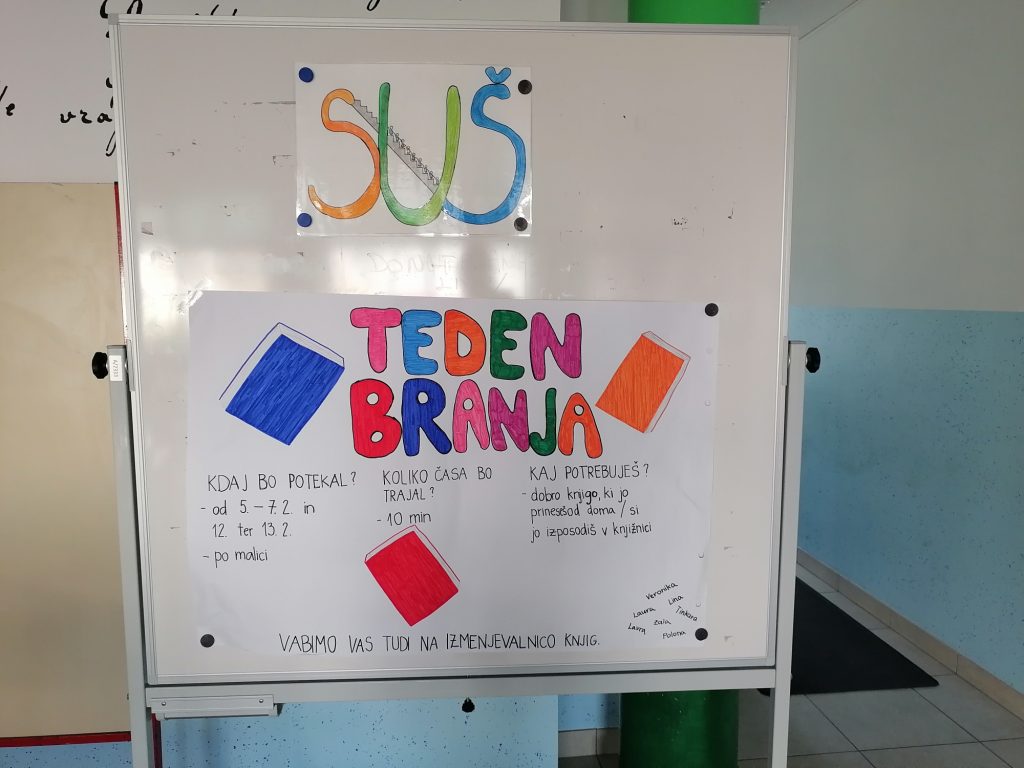 SUŠ
TEDEN
BRANJA
KDAJ BO POTEKAL?
- od 5. – 7. 2. in
12. ter 13. 2.
- po malici
KOLIKO ČASA BO
TRAJAL?
- 10 min
KAJ POTREBUJEŠ?
- dobro knjigo, ki jo
prinesešod doma / si
jo izposodiš v knjižnici
VABIMO VAS TUDI NA IZMENJEVALNICO KNJIG.
Veronika
Laura Lina
Zala Tinkara
Lavra Polona